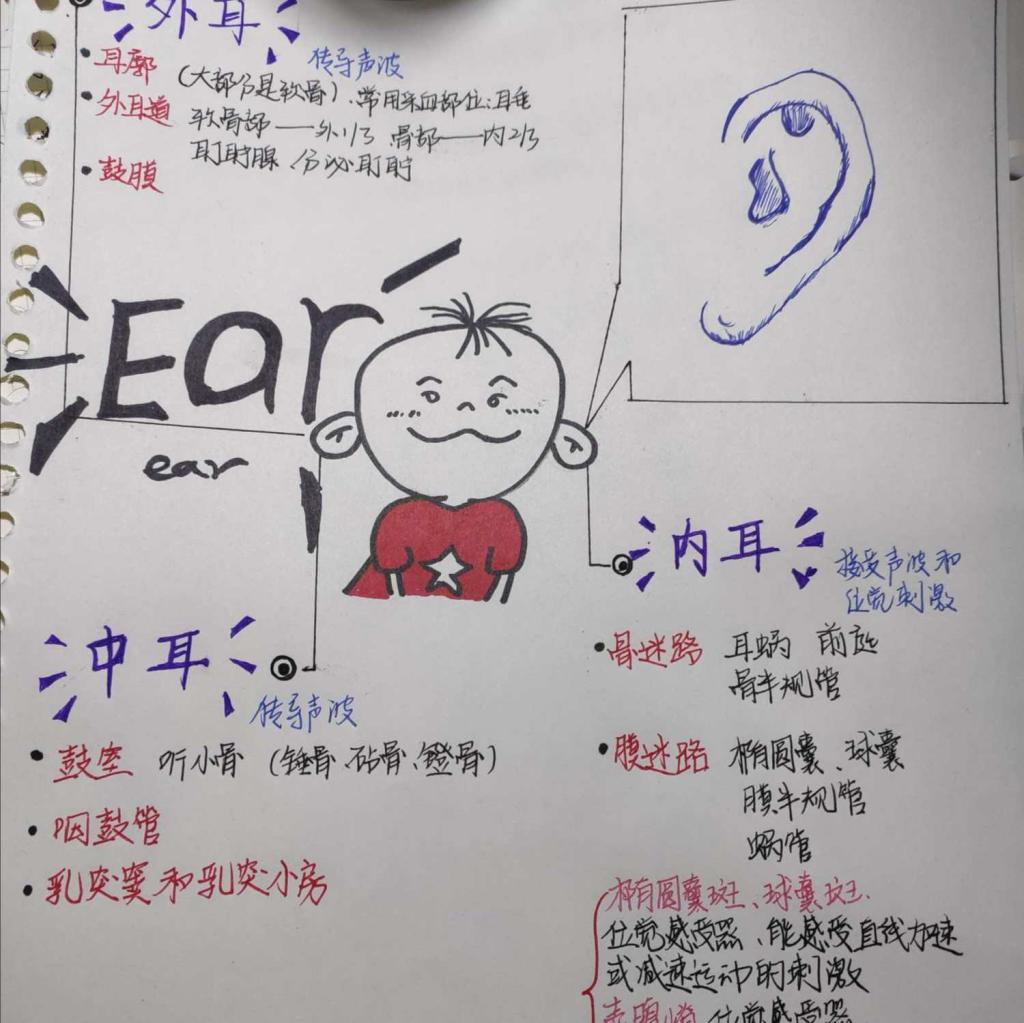 外耳
传导声波
耳廓 (大部分是软骨)、常用采血部位:耳垂
外耳道 软骨部——外1/3 骨部——内2/3
耵聍腺 分泌耵聍
鼓膜
Ear
ear
内耳
接受声波和
位觉刺激
骨迷路 耳蜗 前庭
骨半规管
膜迷路 椭圆囊、球囊
膜半规管
蜗管
椭圆囊斑、球囊斑
位觉感受器、能感受直线加速
或减速运动的刺激
位觉感受器
中耳
传导声波
鼓室 听小骨 (锤骨、砧骨、镫骨)
咽鼓管
乳突窦和乳突小房